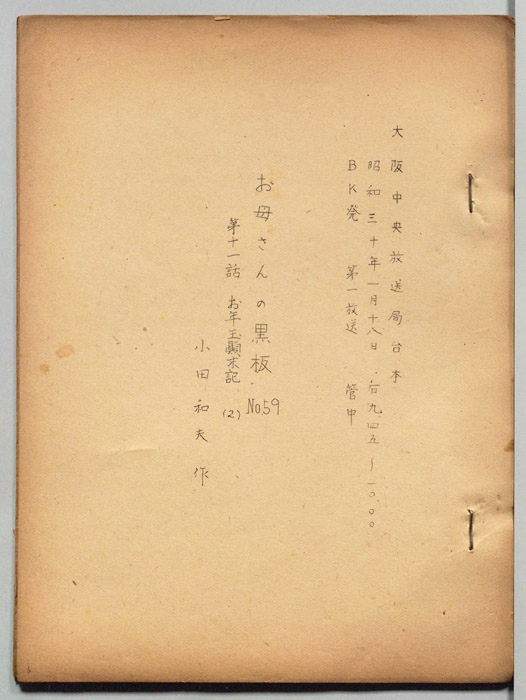 大阪中央放送局台本
昭和三十年一月十八日．后九、四五〜一〇、〇〇
BK発　第一放送　管中
お母さんの黒板．No59
第十一話　お年玉顚末記（2）
小田和夫作